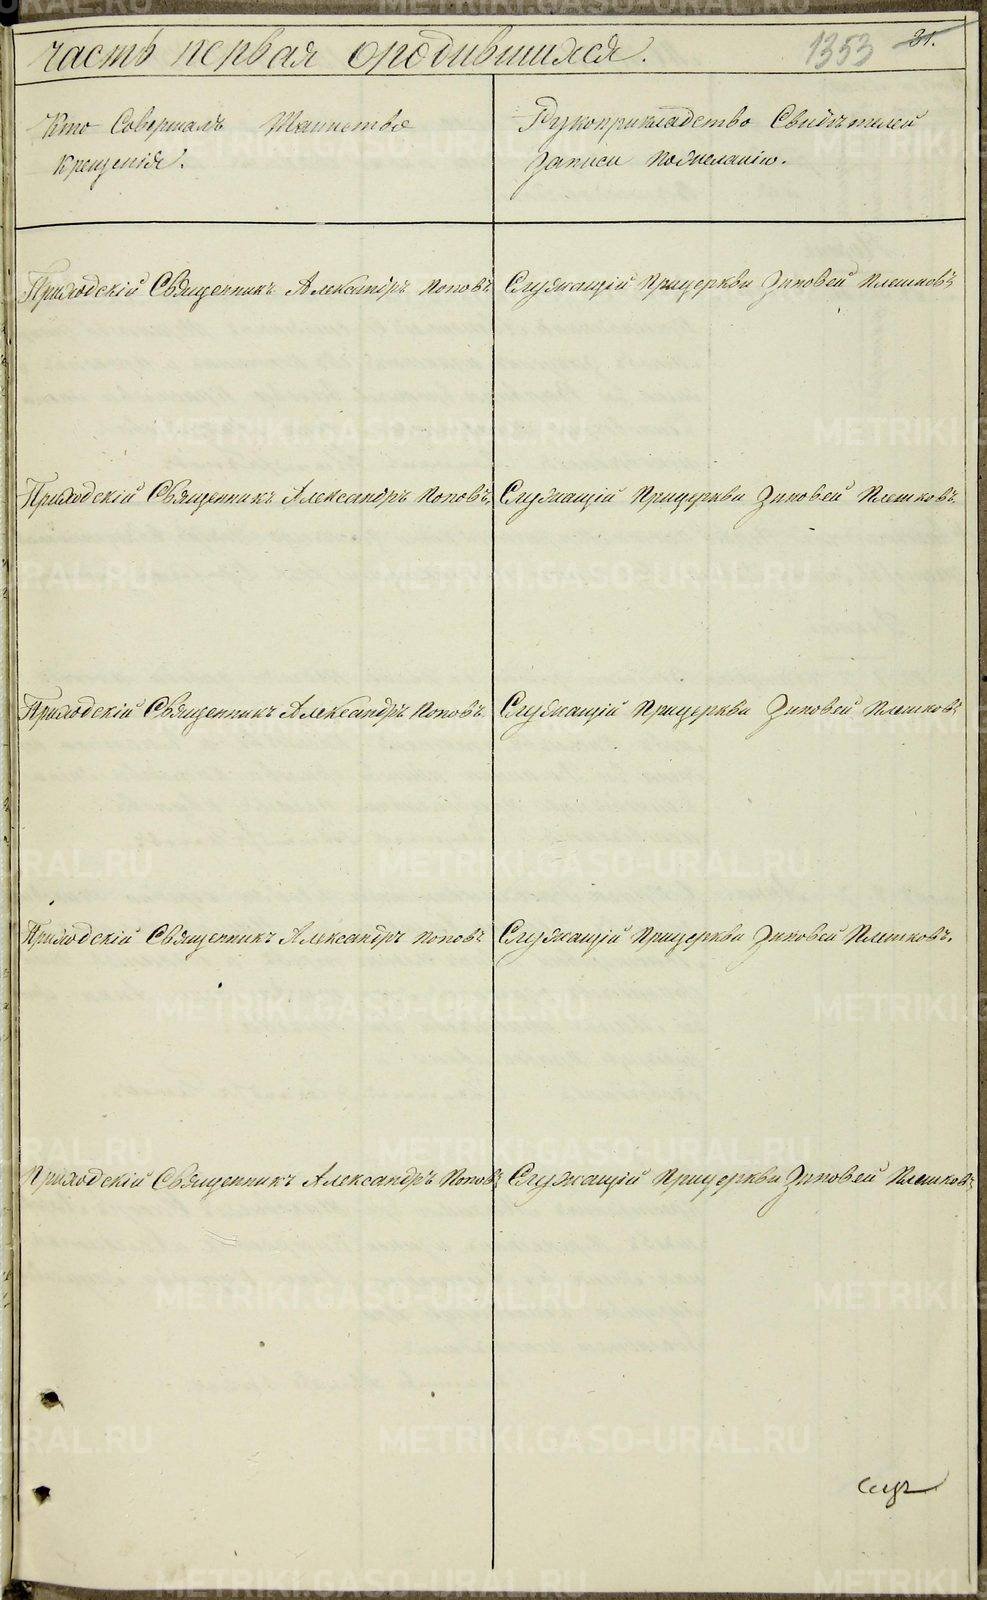 часть первая о родившихся. 1353 31.
Кто Совершалъ Таинство
Крещенія.
Рукоприкладство Свидѣтелей
Записи по желанію.
Приходскій Священникъ Александръ Поповъ Служащій При церкви Зиновей Плешковъ
Приходскій Священникъ Александръ Поповъ. Служащій При церкви Зиновей Плешковъ.
Приходскій Священникъ Александръ Поповъ. Служащій При церкви Зиновей Плешковъ
Приходскій Священникъ Александръ Поповъ Служащій При церкви Зиновей Плешковъ.
Приходскій Священникъ Александръ Поповъ Служащій При церкви Зиновей Плешковъ
METRIKI.GASO-URAL.RU